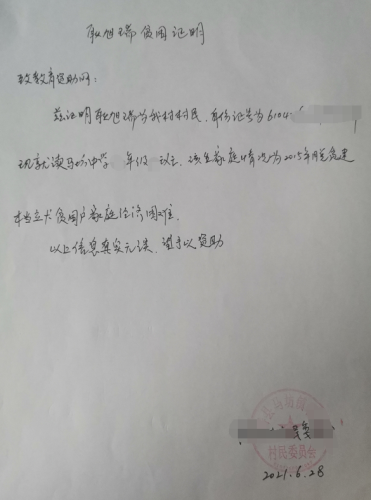 耿旭瑞贫困证明
致教育资助网:
兹证明耿旭瑞为我村村民,身份证号为6104
现就读马坊中学 年级 班,该生家庭情况为2015年因贫建
档立卡贫困户家庭经济困难。
以上信息真实无误,望予以资助
村民委员会
2021.6.28